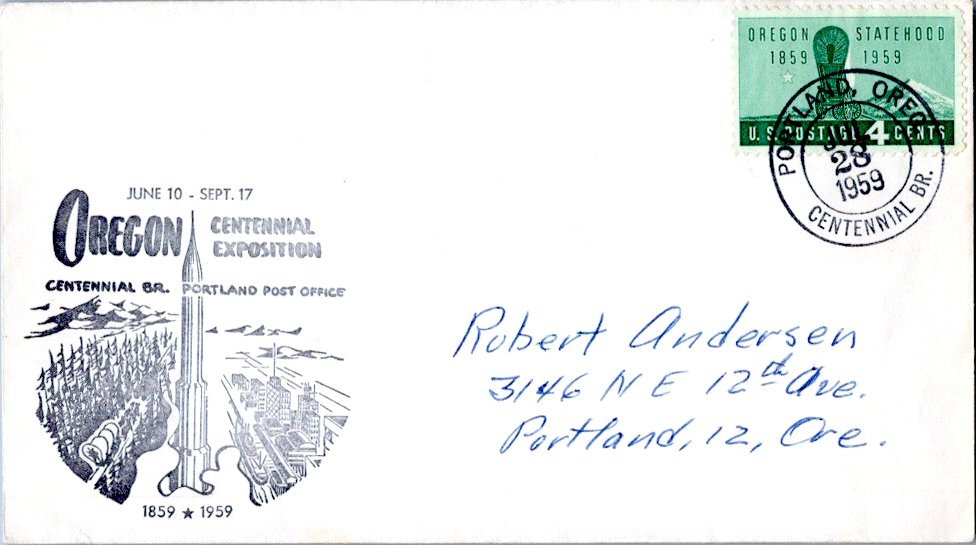 OREGON STATEHOOD
1859 1959
U.S. POSTAGE 4 CENTS
PORTLAND, OREG.
JUL
28
1959
CENTENNIAL BR.
JUNE 10 - SEPT. 17
OREGON CENTENNIAL
EXPOSITION
CENTENNIAL BR. PORTLAND POST OFFICE
1859 ★ 1959
Robert Andersen
3146 N E 12th Ave.
Portland, 12, Ore.